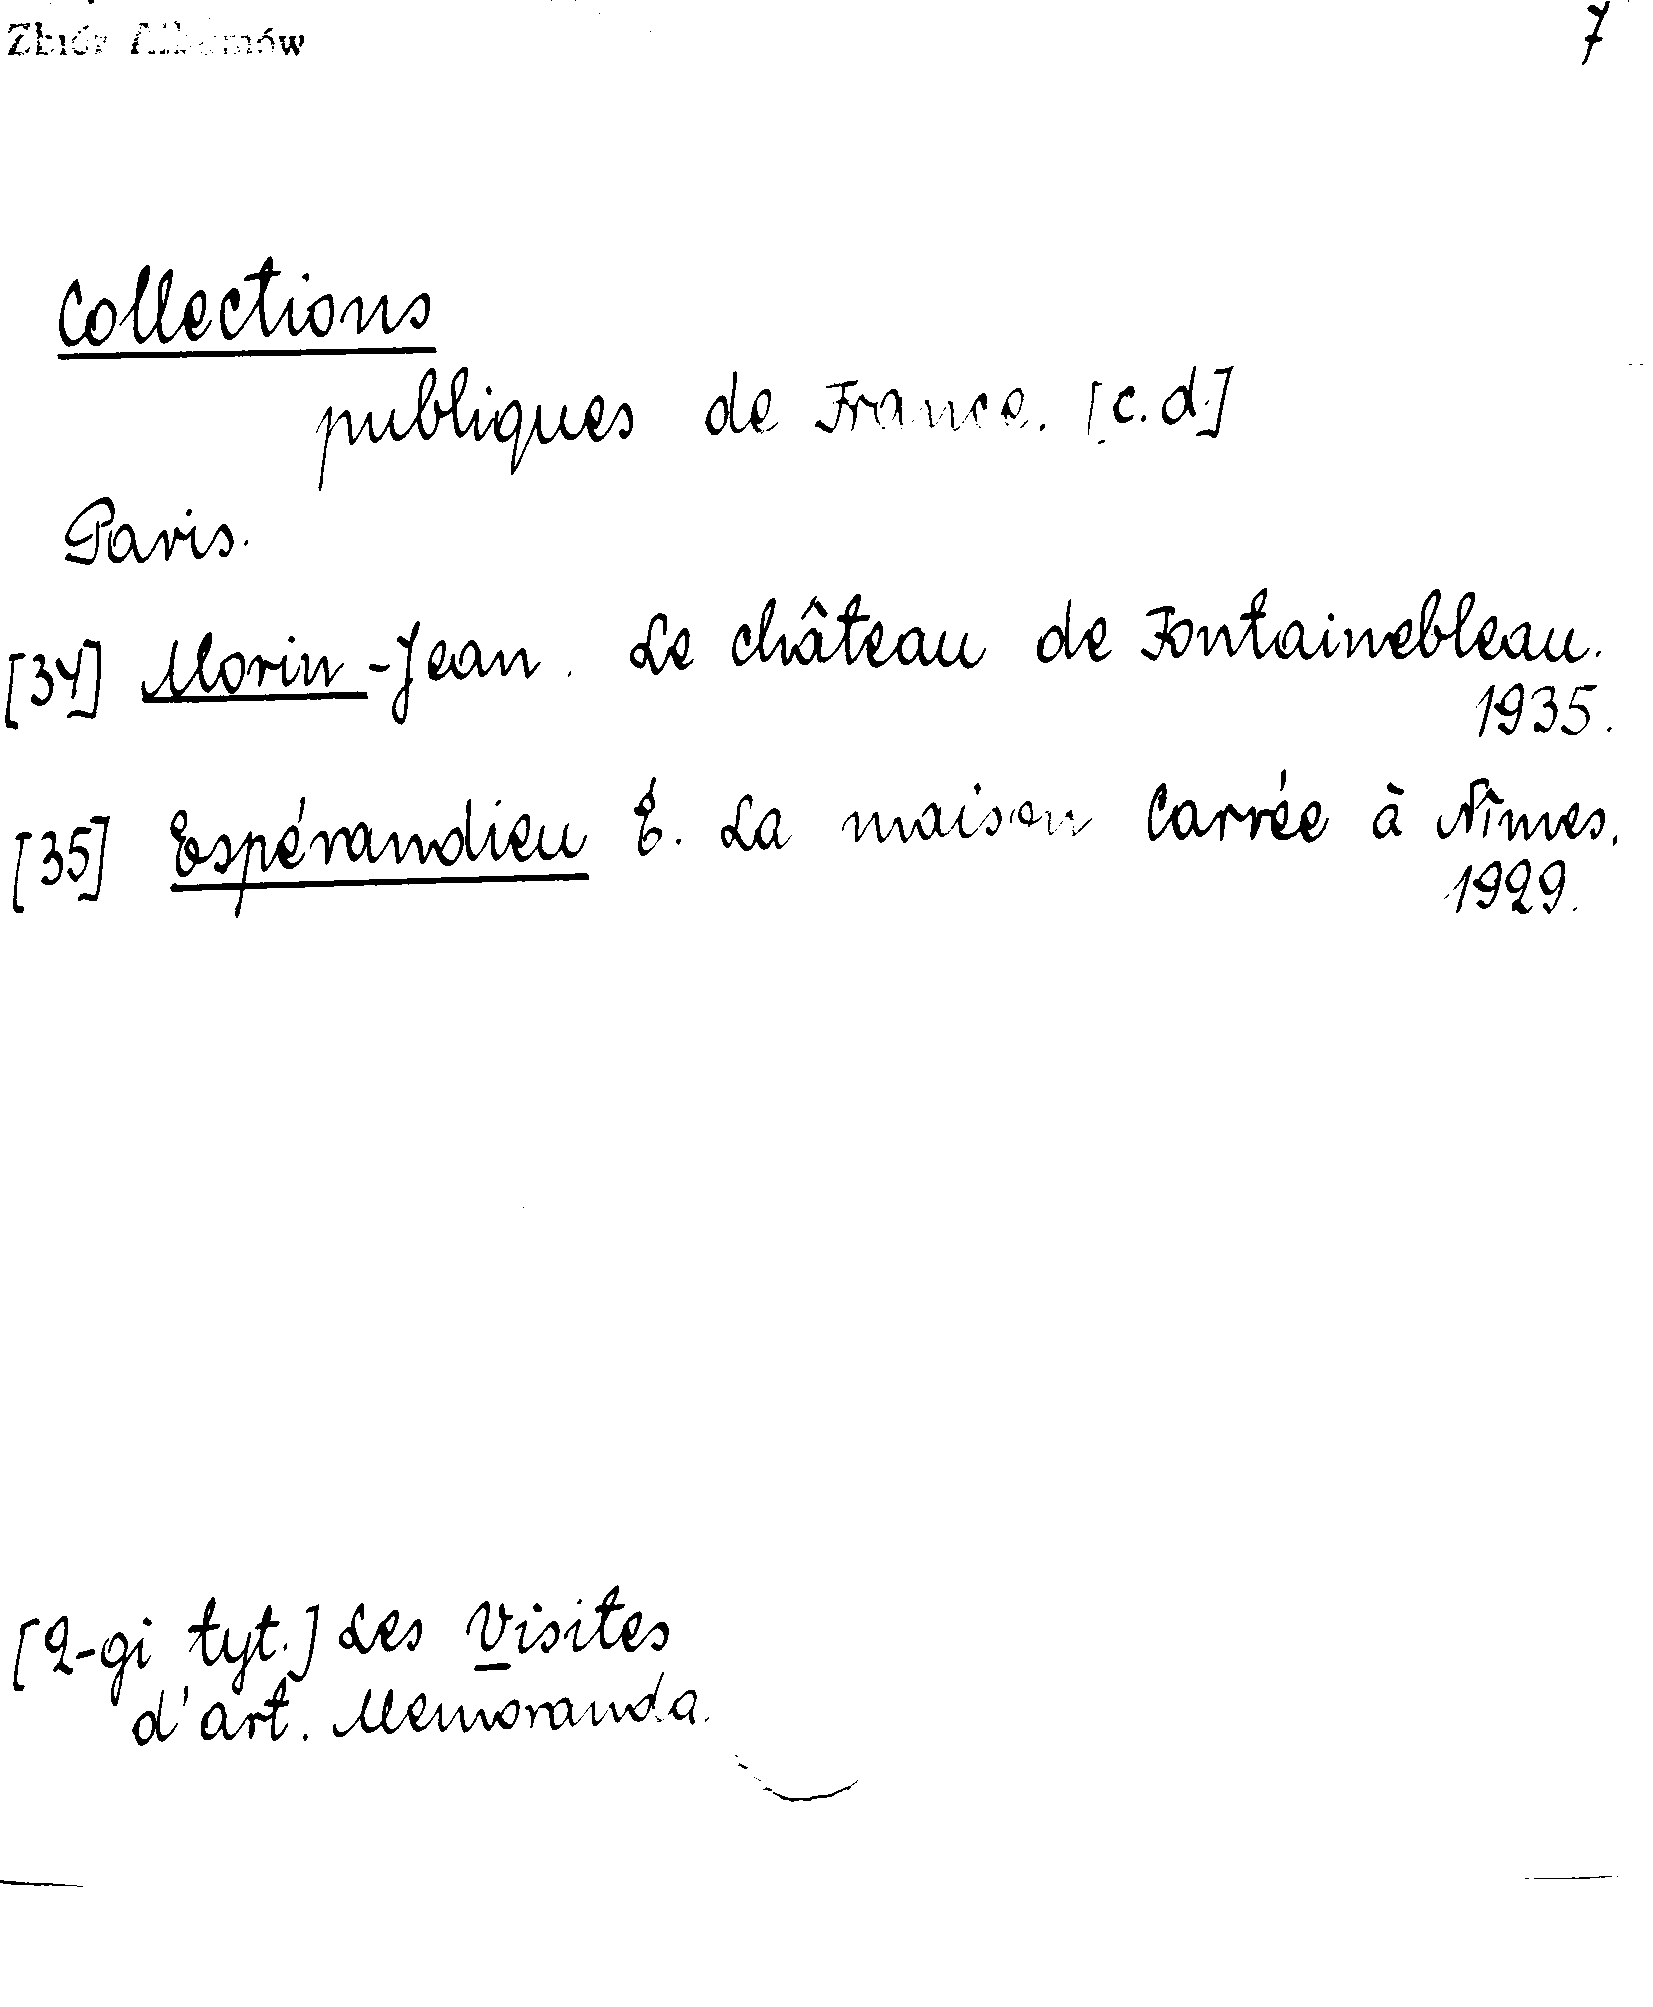 Zbiór Albumów
7
Collections
publiques de France. [c.d.]
Paris.
[34] Morin-Jean. Le château de Fontainebleau.
1935.
[35] Espérandieu É. La maison Carrée à Nîmes.
1929.
[2-gi tyt.] Les Visites
d'art. Memoranda.